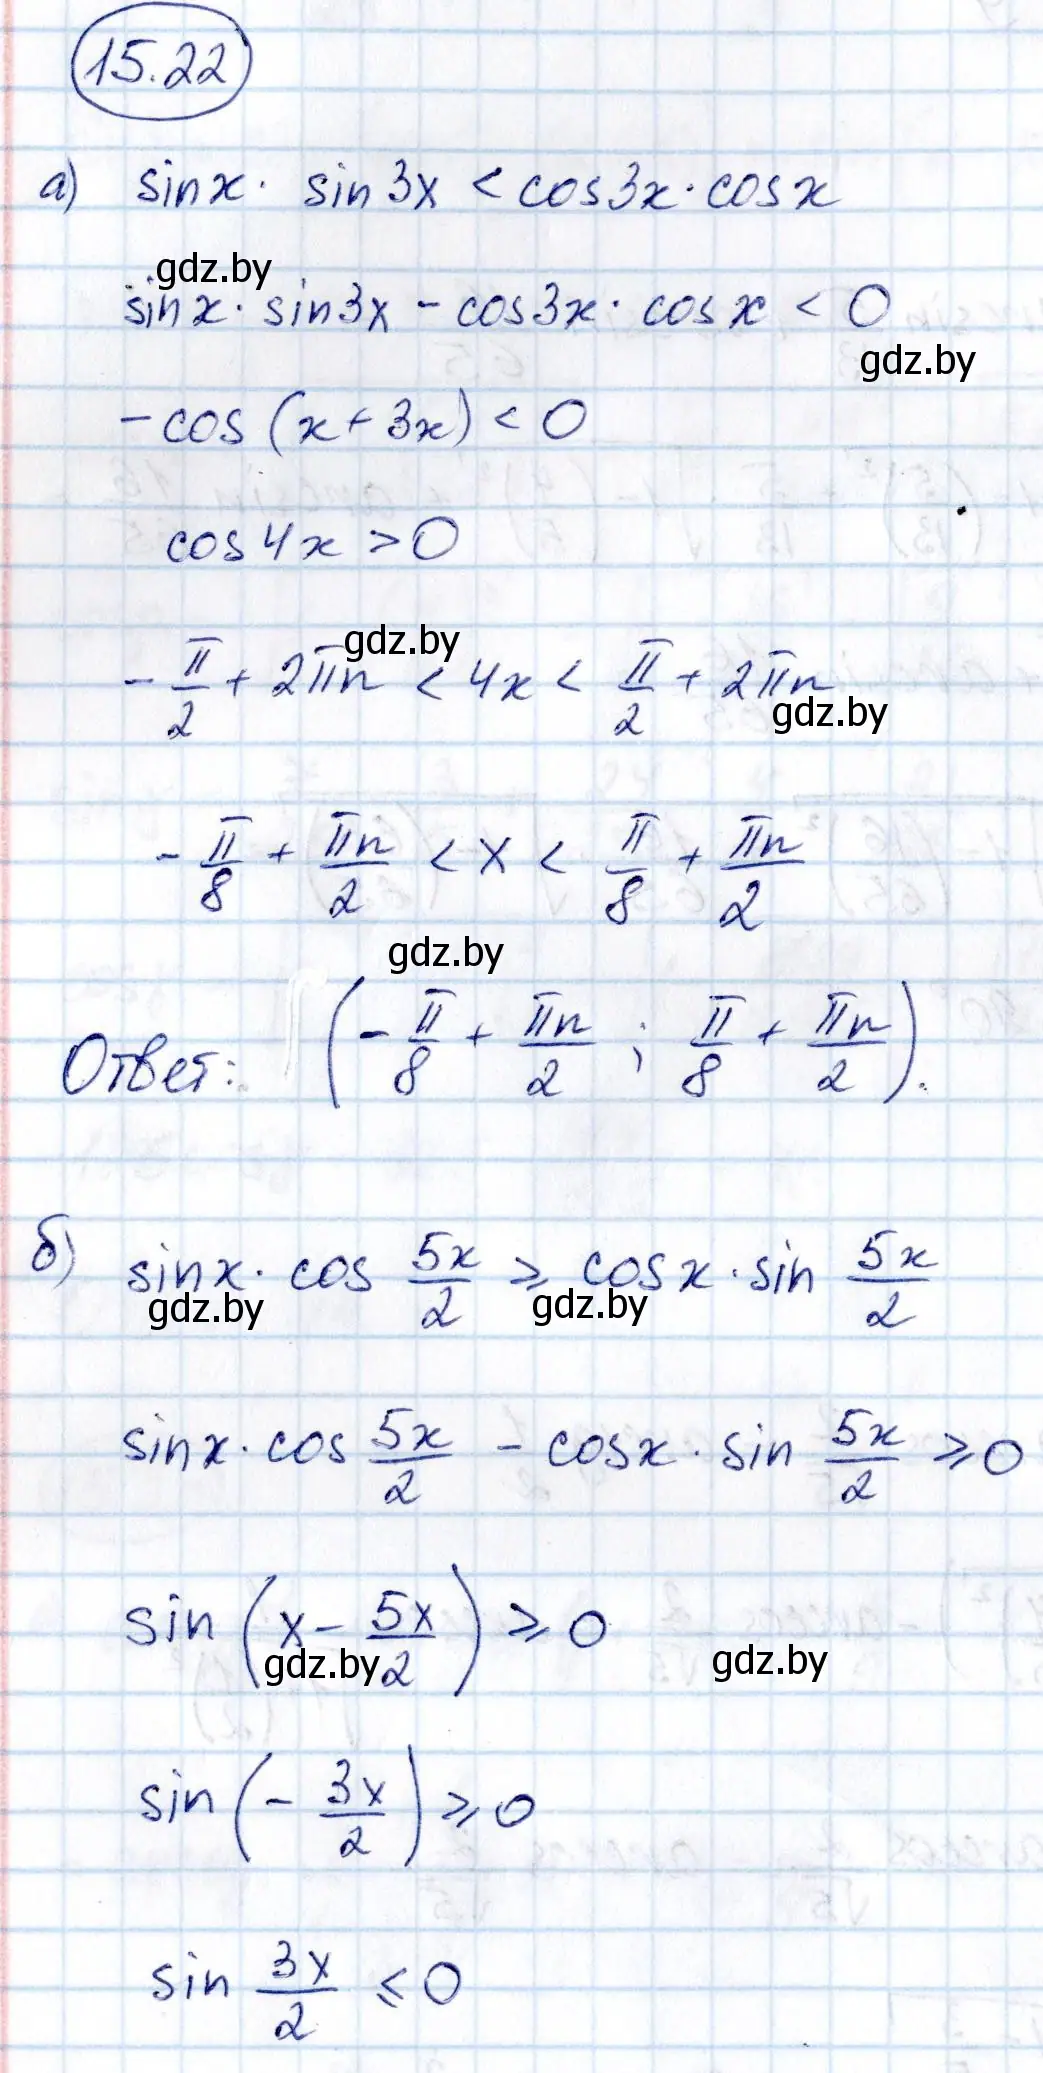 15.22
а) sin x · sin 3x < cos 3x · cos x
gdz.by
sin x · sin 3x − cos 3x · cos x < 0
gdz.by
−cos (x + 3x) < 0
cos 4x > 0
gdz.by
−π/2 + 2πn < 4x < π/2 + 2πn
gdz.by
−π/8 + πn/2 < x < π/8 + πn/2
gdz.by
Ответ: (−π/8 + πn/2 ; π/8 + πn/2).
б) sin x · cos 5x/2 ⩾ cos x · sin 5x/2
gdz.by gdz.by
sin x · cos 5x/2 − cos x · sin 5x/2 ⩾ 0
sin (x − 5x/2) ⩾ 0
gdz.by gdz.by
sin (− 3x/2) ⩾ 0
sin 3x/2 ⩽ 0